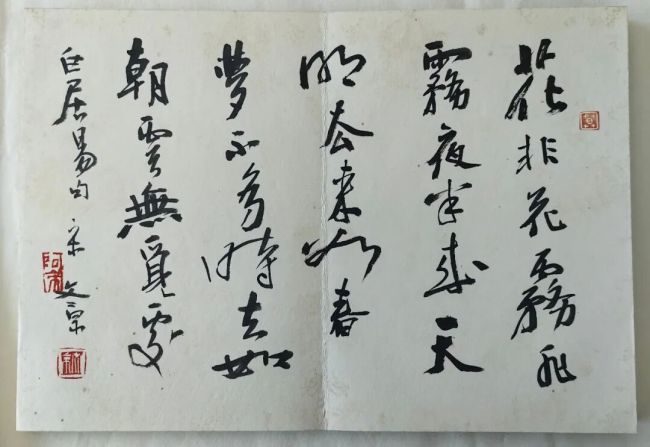 花非花霧非
霧夜半來天
明去來如春
夢不多時去如
朝雲無覓處
白居易句 宋文京